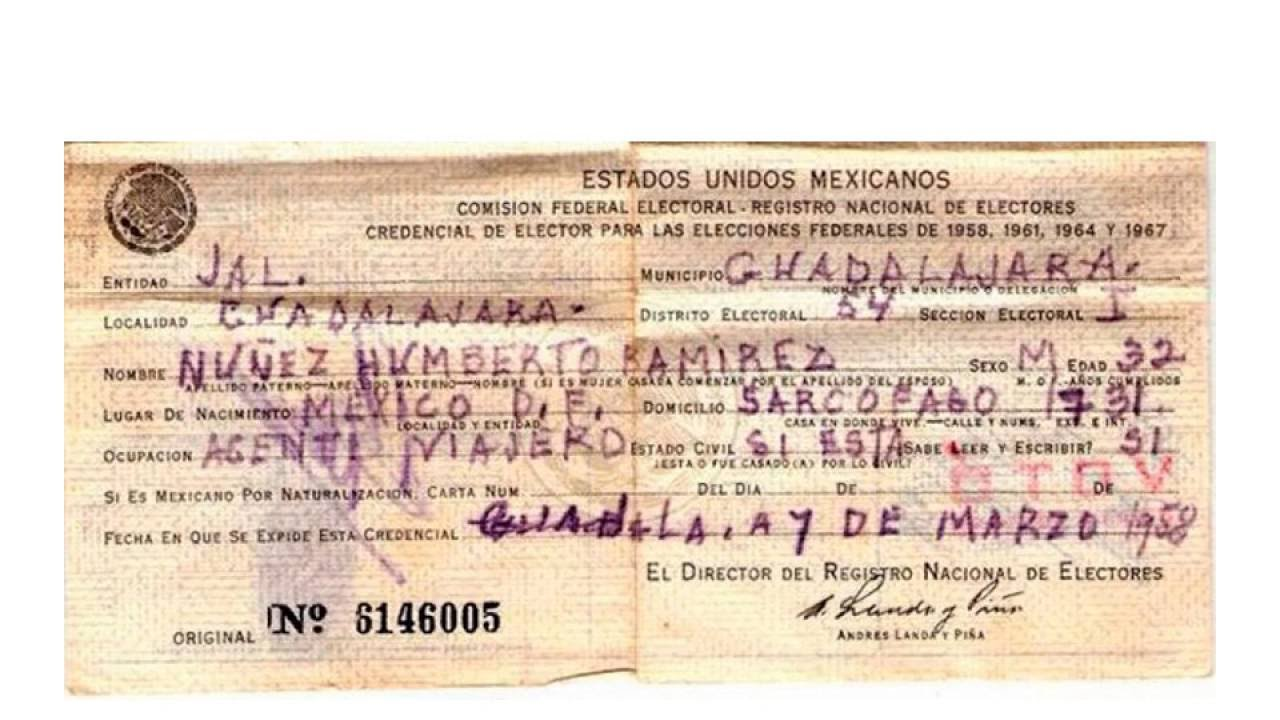 ESTADOS UNIDOS MEXICANOS
COMISION FEDERAL ELECTORAL - REGISTRO NACIONAL DE ELECTORES
CREDENCIAL DE ELECTOR PARA LAS ELECCIONES FEDERALES DE 1958, 1961, 1964 Y 1967
ENTIDAD JAL. MUNICIPIO GUADALAJARA.
NOMBRE DEL MUNICIPIO O DELEGACION
LOCALIDAD GUADALAJARA- DISTRITO ELECTORAL 54 SECCION ELECTORAL I
NOMBRE NUÑEZ HUMBERTO RAMIREZ SEXO M EDAD 32
APELLIDO PATERNO—APELLIDO MATERNO—NOMBRE (SI ES MUJER CASADA COMENZAR POR EL APELLIDO DEL ESPOSO) M. O F.-AÑOS CUMPLIDOS
LUGAR DE NACIMIENTO MEXICO D.F. DOMICILIO SARCOFAGO 1731.
LOCALIDAD Y ENTIDAD CASA EN DONDE VIVE.—CALLE Y NUMS. EXT. E INT.
OCUPACION AGENTE VIAJERO ESTADO CIVIL SI ESTA SABE LEER Y ESCRIBIR? SI
¿ESTA O FUE CASADO(A) POR LO CIVIL?
SI ES MEXICANO POR NATURALIZACION, CARTA NUM. DEL DIA DE DE
FECHA EN QUE SE EXPIDE ESTA CREDENCIAL A 7 DE MARZO 1958
EL DIRECTOR DEL REGISTRO NACIONAL DE ELECTORES
ORIGINAL Nº 6146005
ANDRES LANDA Y PIÑA